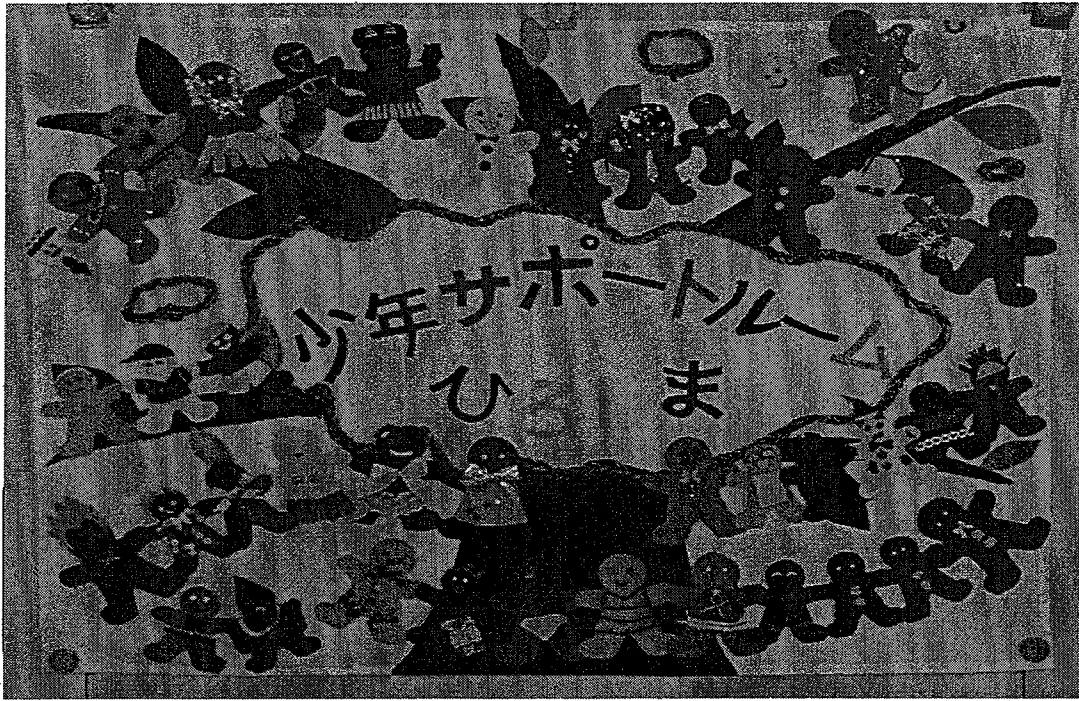 少年サポートルーム
ひ ま